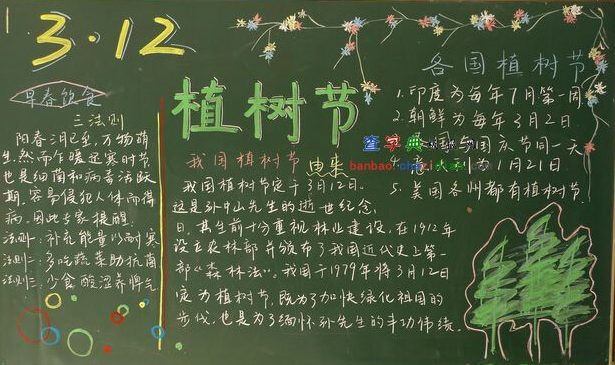 3·12
早春饮食
三法则
阳春三月已至，万物萌
生，然而乍暖还寒时节
也是细菌和病毒活跃
期，容易侵犯人体而得
病。因此专家提醒
法则一：补充能量以耐寒
法则二：多吃蔬菜助抗菌
法则三：少食酸涩养脾气
植树节
我国植树节 由来
我国植树节定于3月12日。
这是孙中山先生的逝世纪念
日，其生前十分重视林业建设，在1912年
设立农林部并颁布了我国近代史上第一
部《森林法》。我国于1979年将3月12日
定为植树节，既为了加快绿化祖国的
步伐，也是为了缅怀孙先生的丰功伟绩。
各国植树节
1. 印度为每年7月第一周
2. 朝鲜为每年3月2日
国与国庆节同一天
4. 为1月21日
5. 美国各州都有植树节
查字典
banbao.chazidian.com